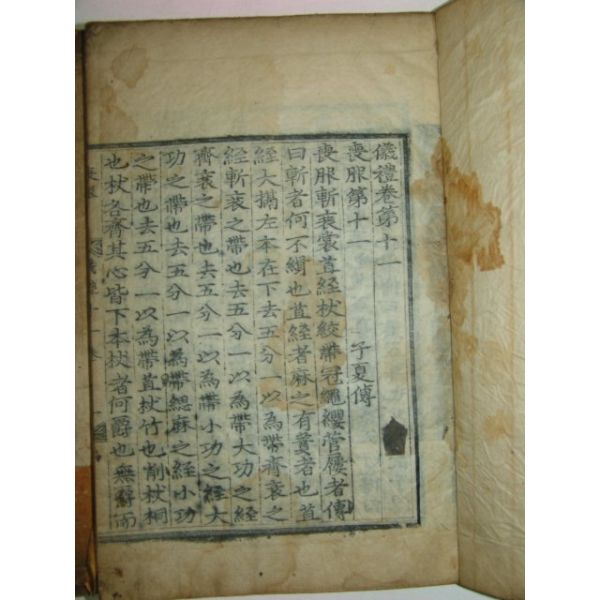 儀禮卷第十一
喪服第十一 子夏傳
喪服斬衰裳苴絰杖絞帶冠繩纓菅屨者傳
曰斬者何不緝也苴絰者麻之有蕡者也苴
絰大搹左本在下去五分一以為帶齊衰之
絰斬衰之帶也去五分一以為帶大功之絰
齊衰之帶也去五分一以為帶小功之絰大
功之帶也去五分一以為帶緦麻之絰小功
之帶也去五分一以為帶苴杖竹也削杖桐
也杖各齊其心皆下本杖者何爵也無爵而